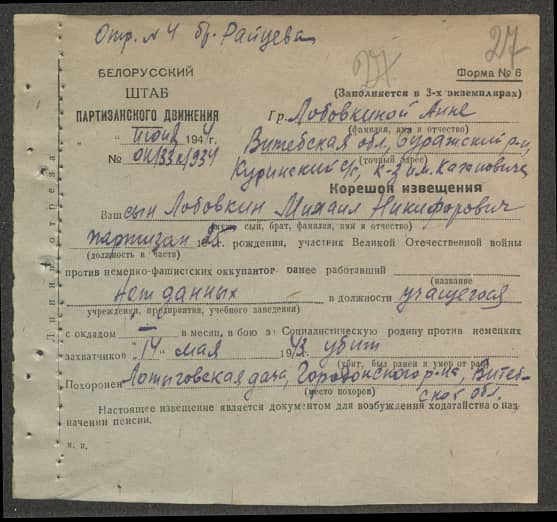 Отр. № 4 бр. Райцева
27
27
БЕЛОРУССКИЙ
ШТАБ
ПАРТИЗАНСКОГО ДВИЖЕНИЯ
Форма № 6
(Заполняется в 3-х экземплярах)
Гр. Лобовкиной Анне
(фамилия, имя и отчество)
" " июня 1944
№ 0К/33к/934
Витебская обл, Суражский р-н,
(точный адрес)
Кудинский с/с, к-з им. Кагановича
Корешок извещения
Ваш сын Лобовкин Михаил Никифорович
(муж, сын, брат, фамилия, имя и отчество)
партизан 25 рождения, участник Великой Отечественной войны
(должность в части)
против немецко-фашистских оккупантов ранее работавший
(название
нет данных в должности учащегося
учреждения, предприятия, учебного заведения)
с окладом — в месяц, в бою за Социалистическую родину против немецких
захватчиков "14" мая 1943 убит
(убит, был ранен и умер от ран)
Похоронен Лотиговская дача, Городокского р-на, Витеб-
(место похорон)
ской обл.
Настоящее извещение является документом для возбуждения ходатайства о наз-
начении пенсии.
м. п.
Линия отреза